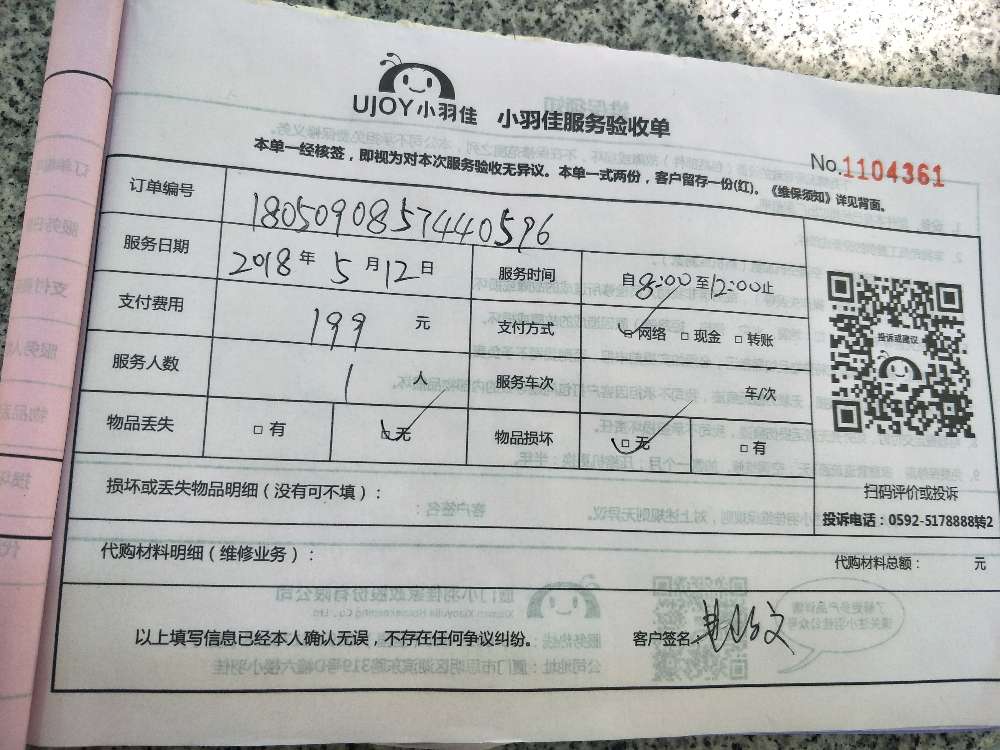 UJOY小羽佳 小羽佳服务验收单
No.1104361
本单一经核签，即视为对本次服务验收无异议。本单一式两份，客户留存一份(红)。《维保须知》详见背面。
订单编号 1805090857440596
服务日期 2018年5月12日 服务时间 自8:00至12:00止
支付费用 199元 支付方式 □网络 □现金 □转账
服务人数 1人 服务车次 车/次
物品丢失 □有 □无 物品损坏 □无 □有
投诉或建议
扫码评价或投诉
投诉电话：0592-5178888转2
损坏或丢失物品明细（没有可不填）：
代购材料明细（维修业务）： 代购材料总额： 元
以上填写信息已经本人确认无误，不存在任何争议纠纷。 客户签名：